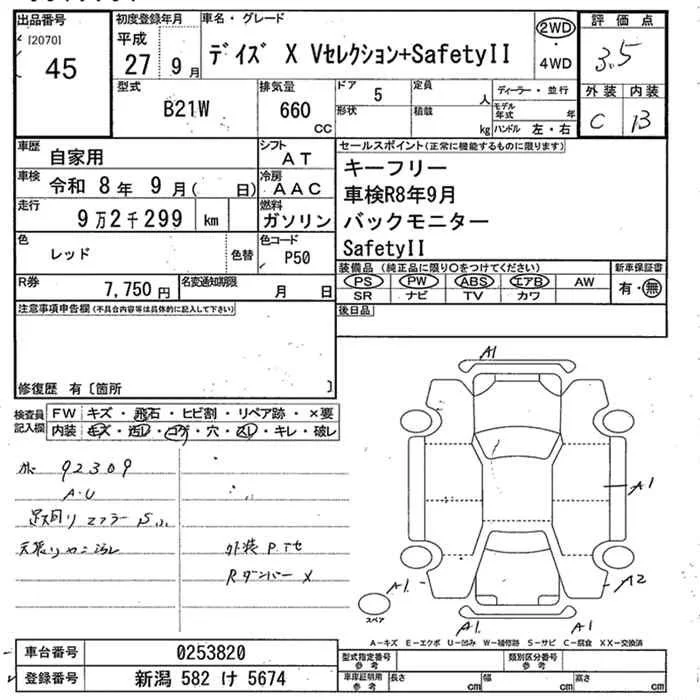 出品番号
[2070]
45
初度登録年月
平成
27 9月
車名・グレード
デイズ X Vセレクション+SafetyII
2WD
・
4WD
評価点
3.5
外装 内装
C B
型式
B21W
排気量
660
CC
ドア
5
形状
定員
人
積載
kg
ディーラー・並行
モデル年式 年
ハンドル 左・右
車歴
自家用
シフト
AT
車検
令和 8年 9月( 日)
冷房
AAC
走行
9万2千299 km
燃料
ガソリン
色
レッド
色替
色コード
P50
R券
7,750円
名変通知期限
月 日
セールスポイント(正常に機能するものに限ります)
キーフリー
車検R8年9月
バックモニター
SafetyII
装備品(純正品に限り〇をつけてください)
新車保証書
PS PW ABS エアB AW
SR ナビ TV カワ
有・無
注意事項申告欄(不具合内容等は具体的に記入して下さい)
後日品
修復歴 有〔箇所 〕
検査員
記入欄
FW キズ・飛石・ヒビ割・リペア跡・×要
内装 キズ・汚レ・コゲ・穴・スレ・キレ・破レ
92309
A.U
外装 P.T.セ
Rダンパー X
A1
A1
A1
A2
A1
スペア
A-キズ E-エクボ U-凹み W-補修跡 S-サビ C-腐食 XX-交換済
車台番号
0253820
登録番号
新潟 582 け 5674
型式指定番号
参考
類別区分番号
参考
車庫証明用
参考
長さ
cm
幅
cm
高さ
cm